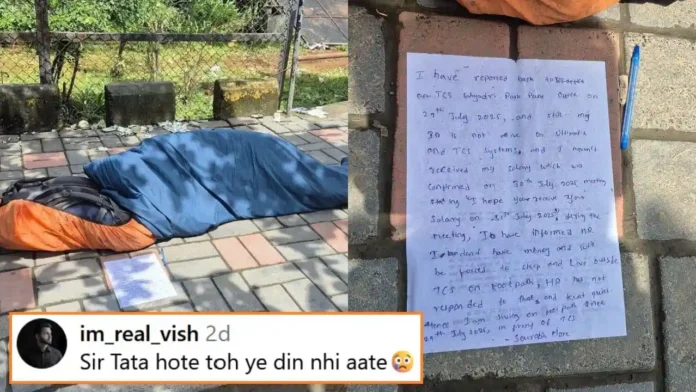 I have reported back to
TCS Sahyadri Park Pune Office on
29th July 2025, and still my
ID is not active on Ultimatix
and TCS Systems, and I haven't
received my salary which was
confirmed on 30th July, 2025 meeting
hope you receive your
Salary on 31st July, 2025, during the
meeting, I have informed HR
I don't have money and will
be forced to sleep and Live outside
TCS on footpath, HR has not
responded to that and kept quiet
I am living on footpath since
29th July 2025, in front of TCS
- Saurabh More
im_real_vish 2d
Sir Tata hote toh ye din nhi aate😨